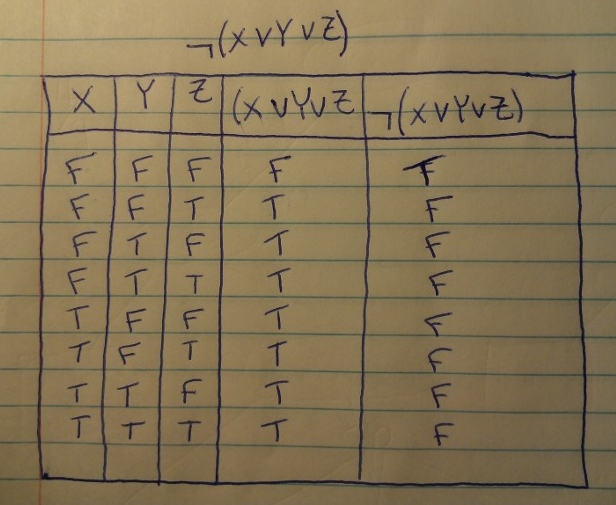 ¬(X∨Y∨Z)
X Y Z (X∨Y∨Z ¬(X∨Y∨Z)
F F F F
F F T T F
F T F T F
F T T T F
T F F T F
T F T T F
T T F T F
T T T T F